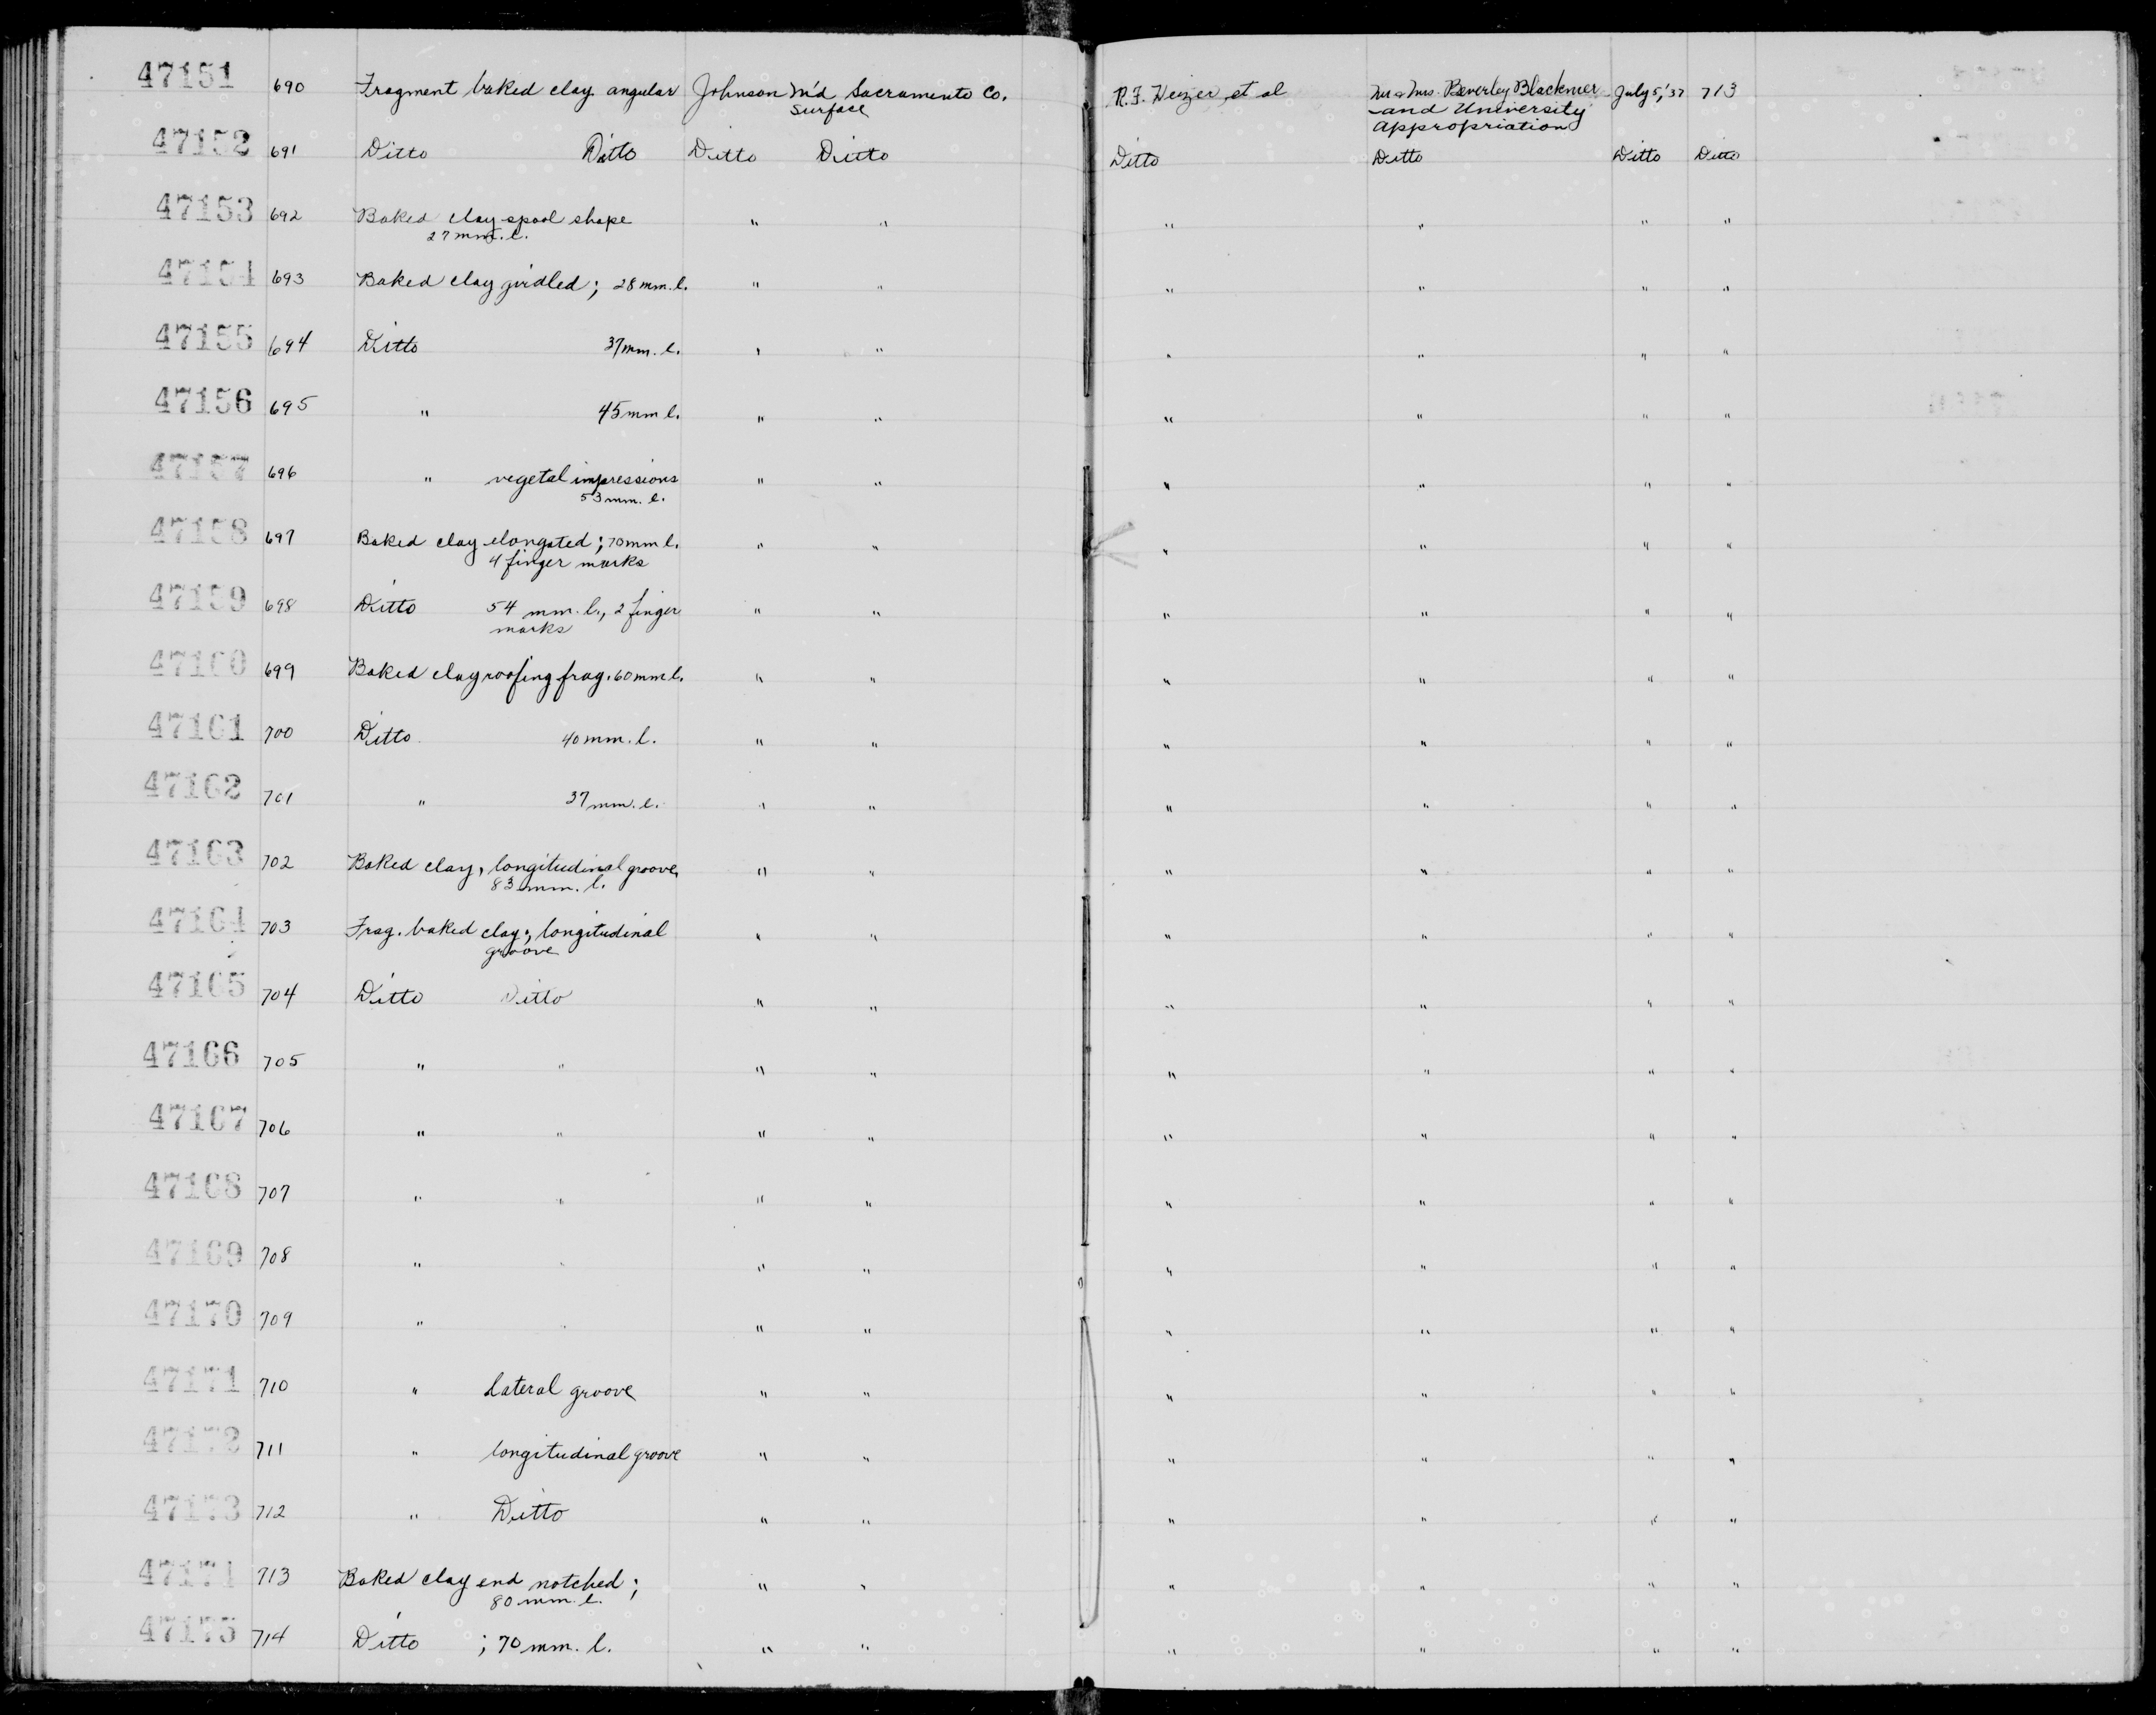 47151 690 Fragment baked clay angular Johnson M'd Sacramento Co. R.F. Heizer et al Mr & Mrs. Beverley Blackmer July 5, '37 713
Surface and University
Appropriation
47152 691 Ditto Ditto Ditto Ditto Ditto Ditto Ditto Ditto
47153 692 Baked clay spool shape " " " " " "
27 mm. l.
47154 693 Baked clay girdled; 28 mm. l. " " " " " "
47155 694 Ditto 37 mm. l. " " " " " "
47156 695 " 45 mm l. " " " " " "
47157 696 " vegetal impressions " " " " " "
53 mm. l.
47158 697 Baked clay elongated; 70 mm l. " " " " " "
4 finger marks
47159 698 Ditto 54 mm. l., 2 finger " " " " " "
marks
47160 699 Baked clay roofing frag. 60 mm l. " " " " " "
47161 700 Ditto 40 mm. l. " " " " " "
47162 701 " 37 mm. l. " " " " " "
47163 702 Baked clay, longitudinal groove, " " " " " "
83 mm. l.
47164 703 Frag. baked clay; longitudinal " " " " " "
groove
47165 704 Ditto Ditto " " " " " "
47166 705 " " " " " " " "
47167 706 " " " " " " " "
47168 707 " " " " " " " "
47169 708 " " " " " " " "
47170 709 " " " " " " " "
47171 710 " Lateral groove " " " " " "
47172 711 " longitudinal groove " " " " " "
47173 712 " Ditto " " " " " "
47174 713 Baked clay end notched; " " " " " "
80 mm. l.
47175 714 Ditto ; 70 mm. l. " " " " " "